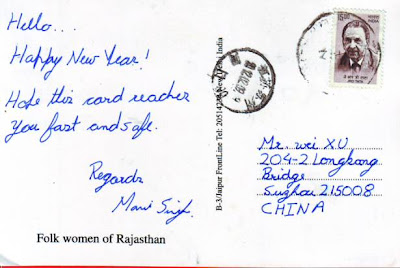 Hello...
Happy New Year!
Hope this card reaches
you fast and safe.
Regards
Folk women of Rajasthan
B-3/Jaipur FrontLine Tel: New Delhi, India
15.00
INDIA
Mr. Wei XU
204-2 Longkang
Bridge
Suzhou 215008
CHINA